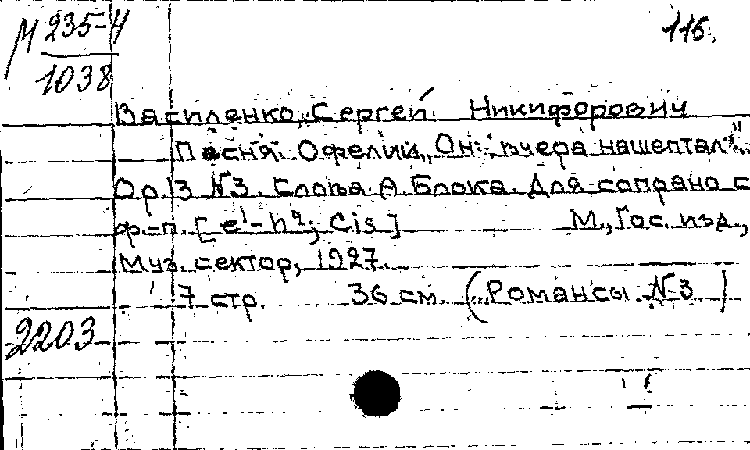 М 235-4
1038
115.
Василенко, Сергей Никифорович
Песня Офелии "Он вчера нашептал".
Ор.13 №3. Слова А. Блока. Для сопрано с
ф-п. [e¹-h²; Cis] М., Гос. изд.,
Муз. сектор, 1927.
7 стр. 36 см. (Романсы №3)
2203